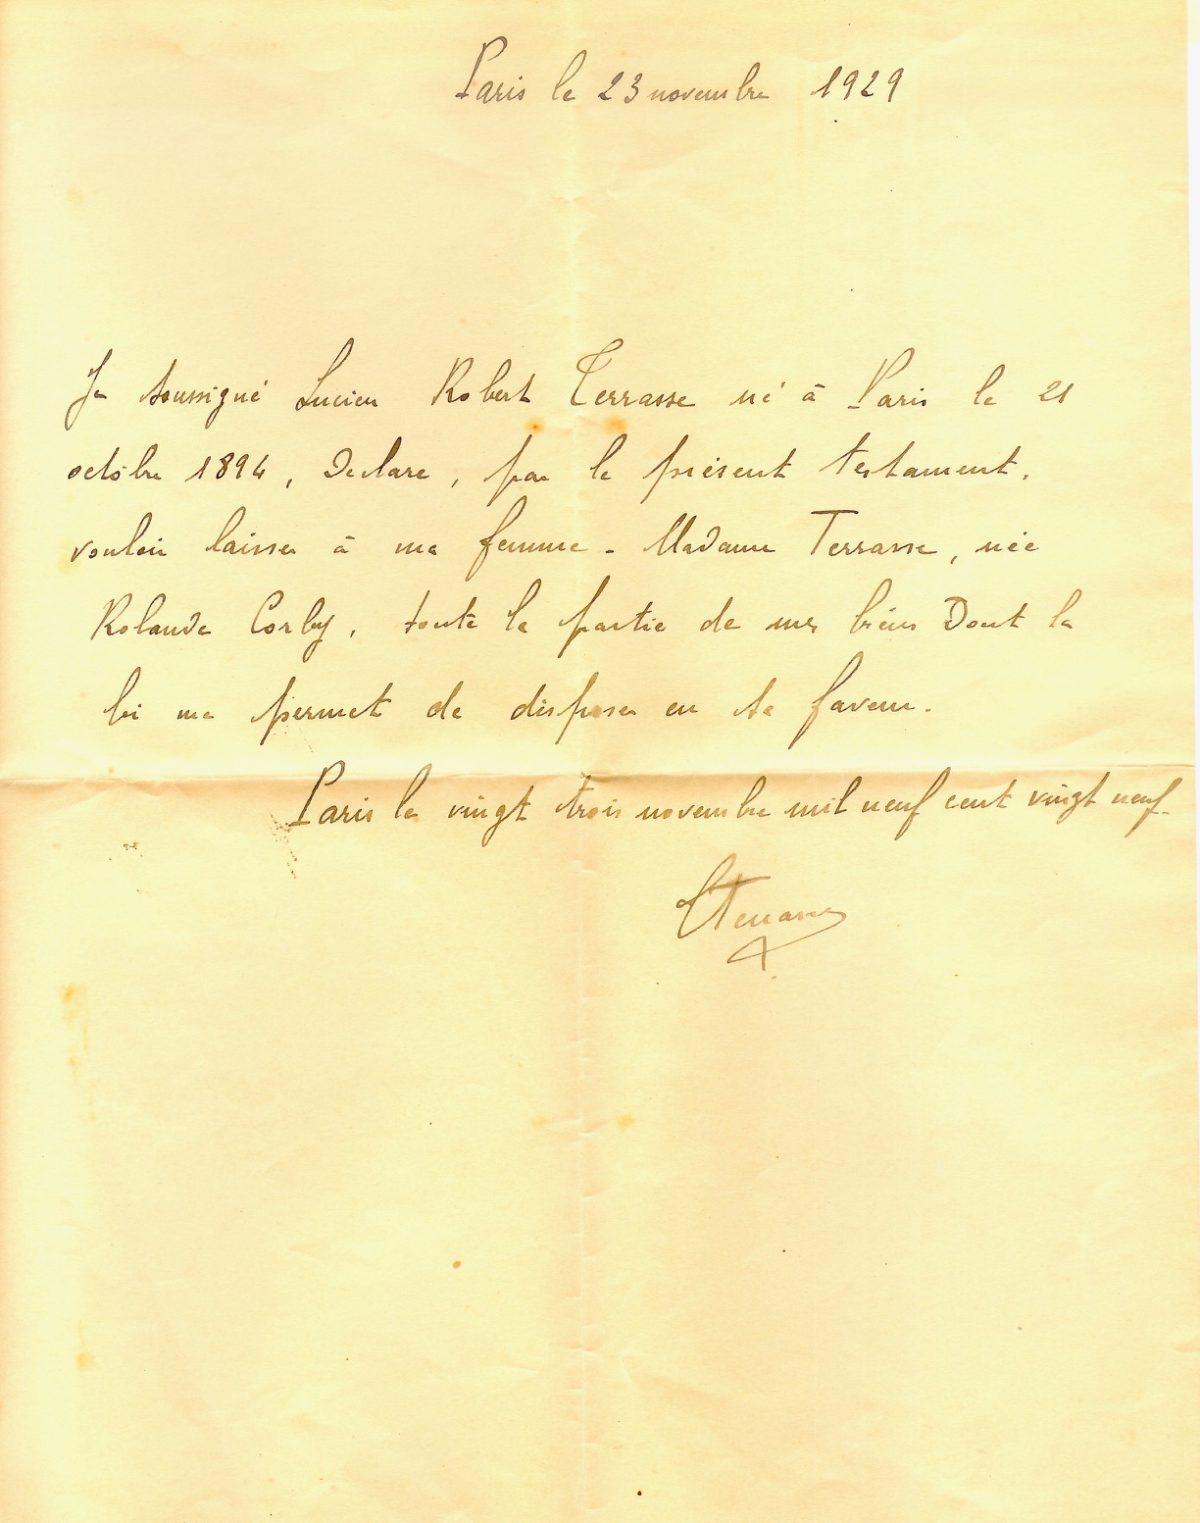 Paris le 23 novembre 1929
Je soussigné Lucien Robert Terrasse né à Paris le 21
octobre 1894, Déclare, par le présent testament,
vouloir laisser à ma femme - Madame Terrasse, née
Rolande Corby, toute la partie de mes biens Dont la
loi me permet de disposer en sa faveur.
Paris le vingt trois novembre mil neuf cent vingt neuf.
LTerrasse